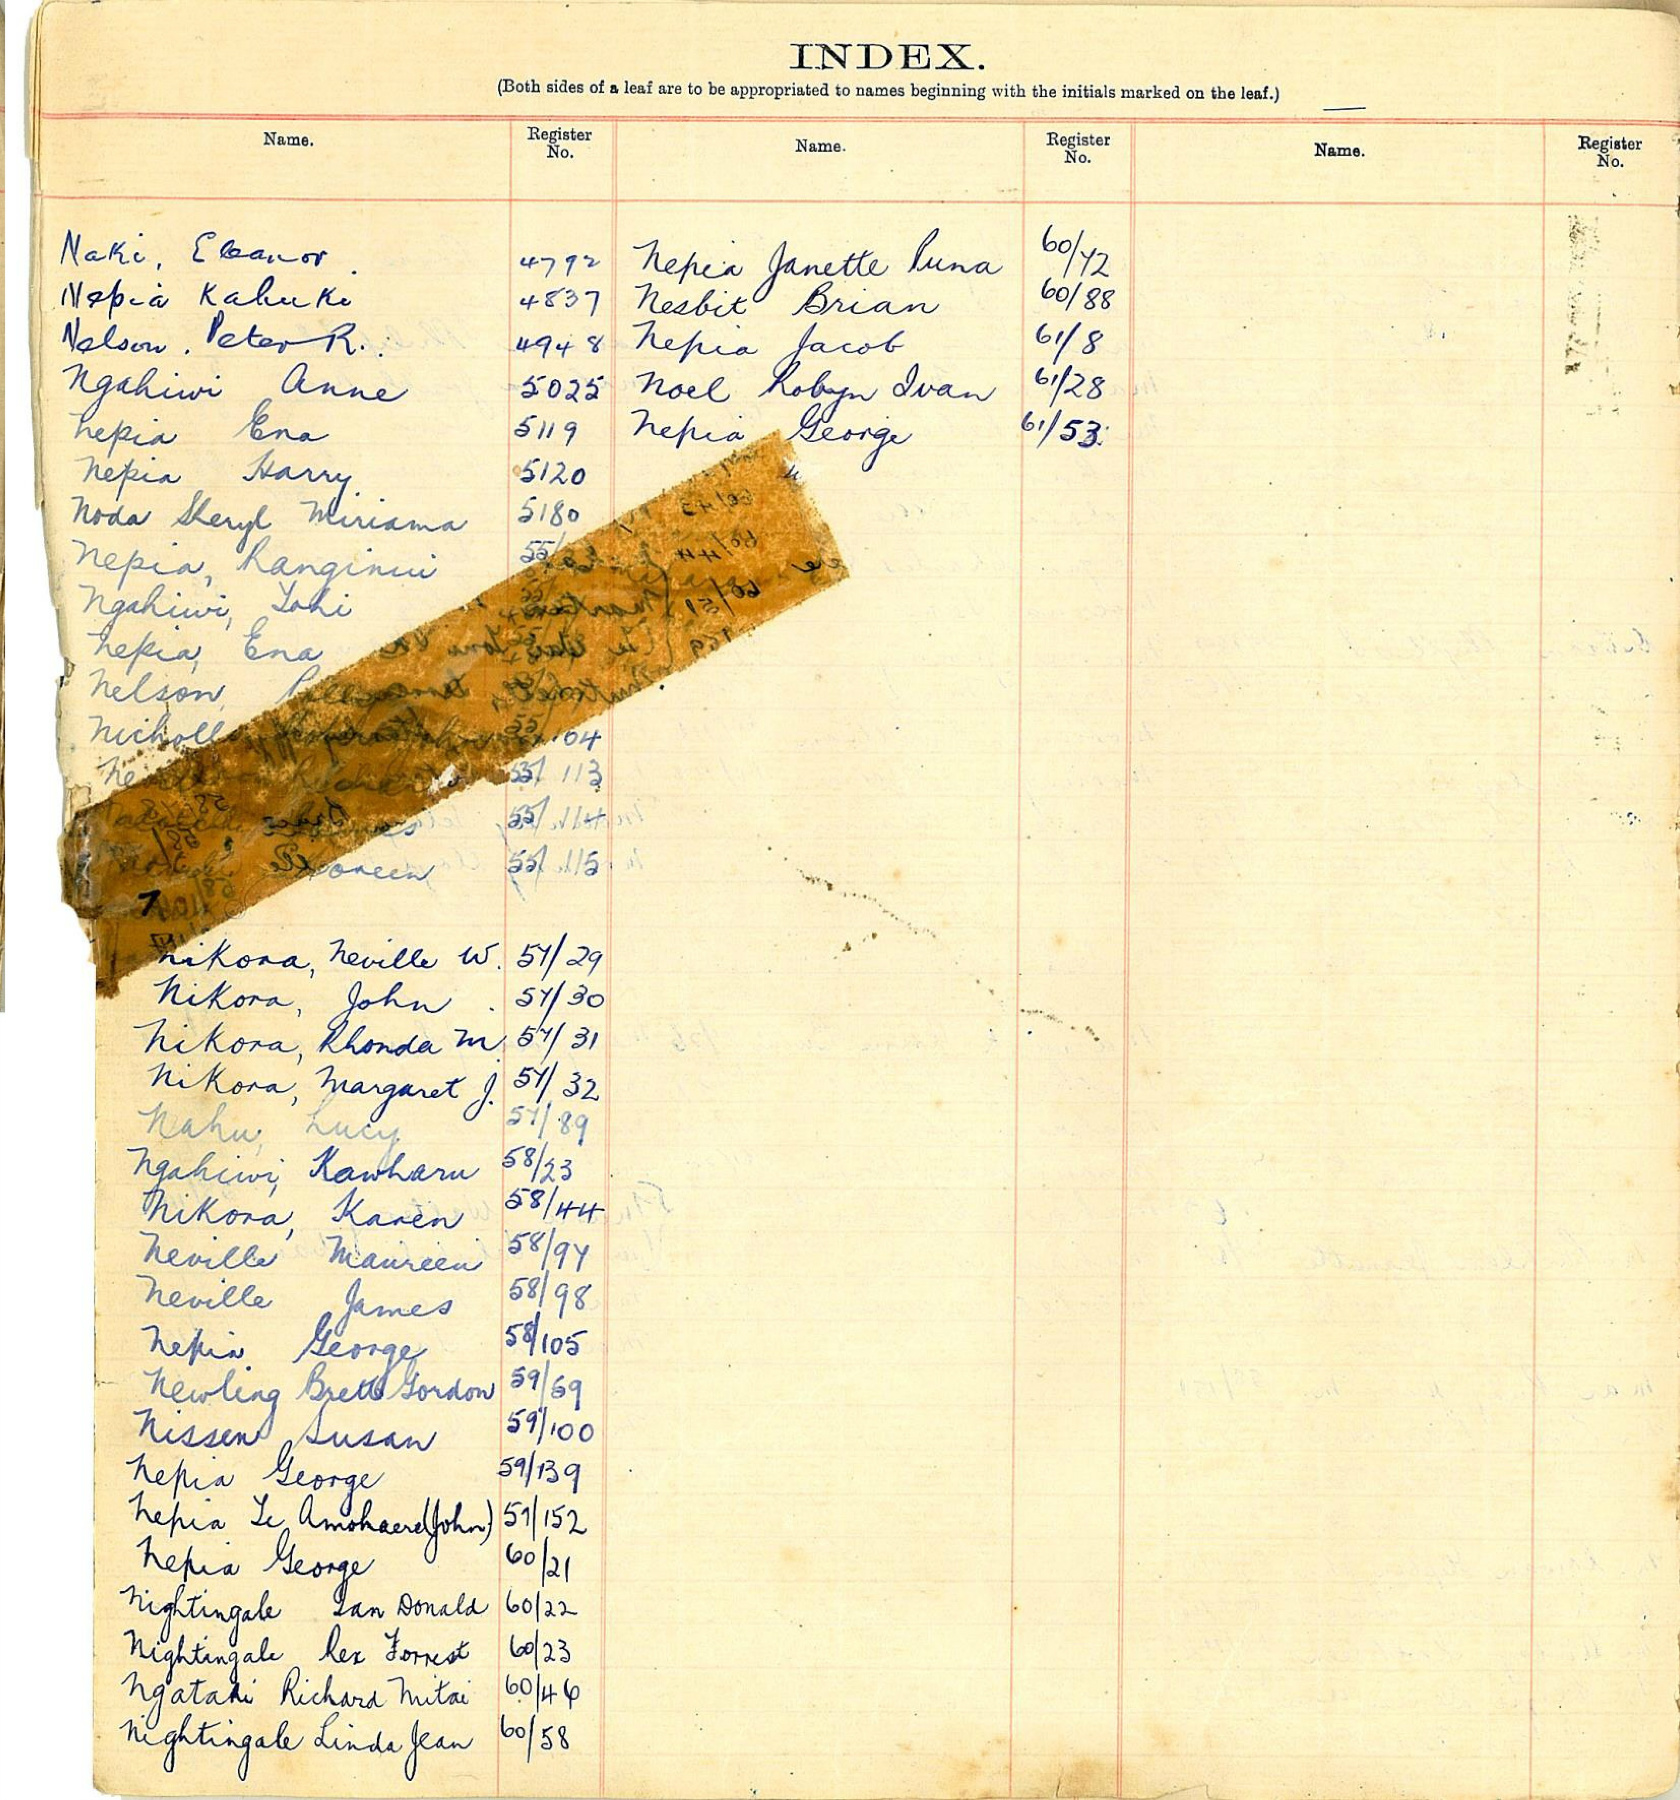 INDEX.
(Both sides of a leaf are to be appropriated to names beginning with the initials marked on the leaf.)
Name. Register No. Name. Register No. Name. Register No.
Naki, Eleanor. 4792
Nepia Kahuki 4837
Nelson. Peter R. 4948
Ngahiwi Anne 5025
Nepia Ena 5119
Nepia Harry 5120
Noda Sheryl Miriama 5180
Nepia, Ranginui 55/
Ngahiwi, Tohi
Nepia, Ena
Nelson,
Nicholls 64
55/113
55/114
55/115
Nikora, Neville W. 57/29
Nikora, John 57/30
Nikora, Rhonda M. 57/31
Nikora, Margaret J. 57/32
Nahu, Lucy 57/89
Ngahiwi, Kawharu 58/23
Nikora, Karen 58/44
Neville Maureen 58/97
Neville James 58/98
Nepia George 58/105
Newling Brett Gordon 59/69
Nissen Susan 59/100
Nepia George 59/139
Nepia Te Amohaere (John) 59/152
Nepia George 60/21
Nightingale Ian Donald 60/22
Nightingale Rex Forrest 60/23
Ngataki Richard Mitai 60/46
Nightingale Linda Jean 60/58
Nepia Janette Puna 60/72
Nesbit Brian 60/88
Nepia Jacob 61/8
Noel Robyn Ivan 61/28
Nepia George 61/53